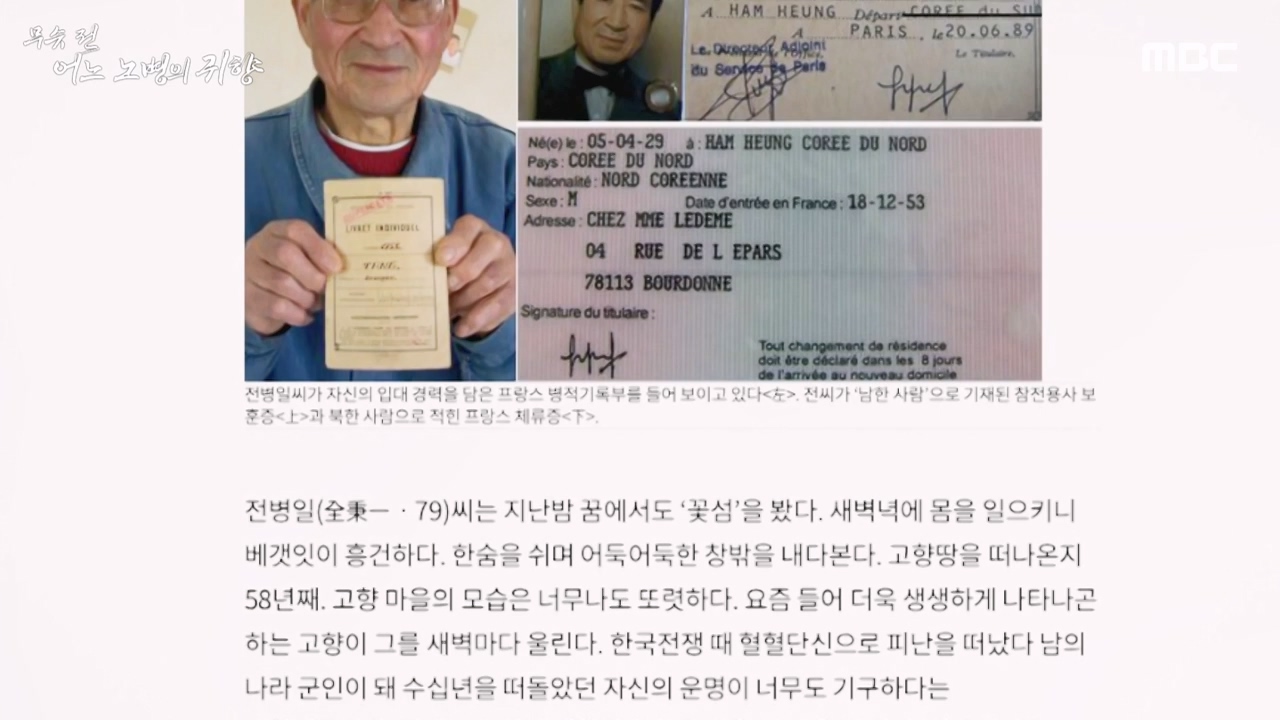 무슈 전
어느 노병의 귀향
MBC
A HAM HEUNG Départ COREE du SUD
A PARIS, le 20.06.89
Le Directeur Adjoint
du Service de Paris
Le Titulaire,
LIVRET INDIVIDUEL
Né(e) le : 05-04-29 à : HAM HEUNG COREE DU NORD
Pays : COREE DU NORD
Nationalité : NORD COREENNE
Sexe : M Date d'entrée en France : 18-12-53
Adresse : CHEZ MME LEDEME
04 RUE DE L EPARS
78113 BOURDONNE
Signature du titulaire :
Tout changement de résidence
doit être déclaré dans les 8 jours
de l'arrivée au nouveau domicile
전병일씨가 자신의 입대 경력을 담은 프랑스 병적기록부를 들어 보이고 있다<左>. 전씨가 '남한 사람'으로 기재된 참전용사 보
훈증<上>과 북한 사람으로 적힌 프랑스 체류증<下>.
전병일(全秉一ㆍ79)씨는 지난밤 꿈에서도 '꽃섬'을 봤다. 새벽녘에 몸을 일으키니
베갯잇이 흥건하다. 한숨을 쉬며 어둑어둑한 창밖을 내다본다. 고향땅을 떠나온지
58년째. 고향 마을의 모습은 너무나도 또렷하다. 요즘 들어 더욱 생생하게 나타나곤
하는 고향이 그를 새벽마다 울린다. 한국전쟁 때 혈혈단신으로 피난을 떠났다 남의
나라 군인이 돼 수십년을 떠돌았던 자신의 운명이 너무도 기구하다는